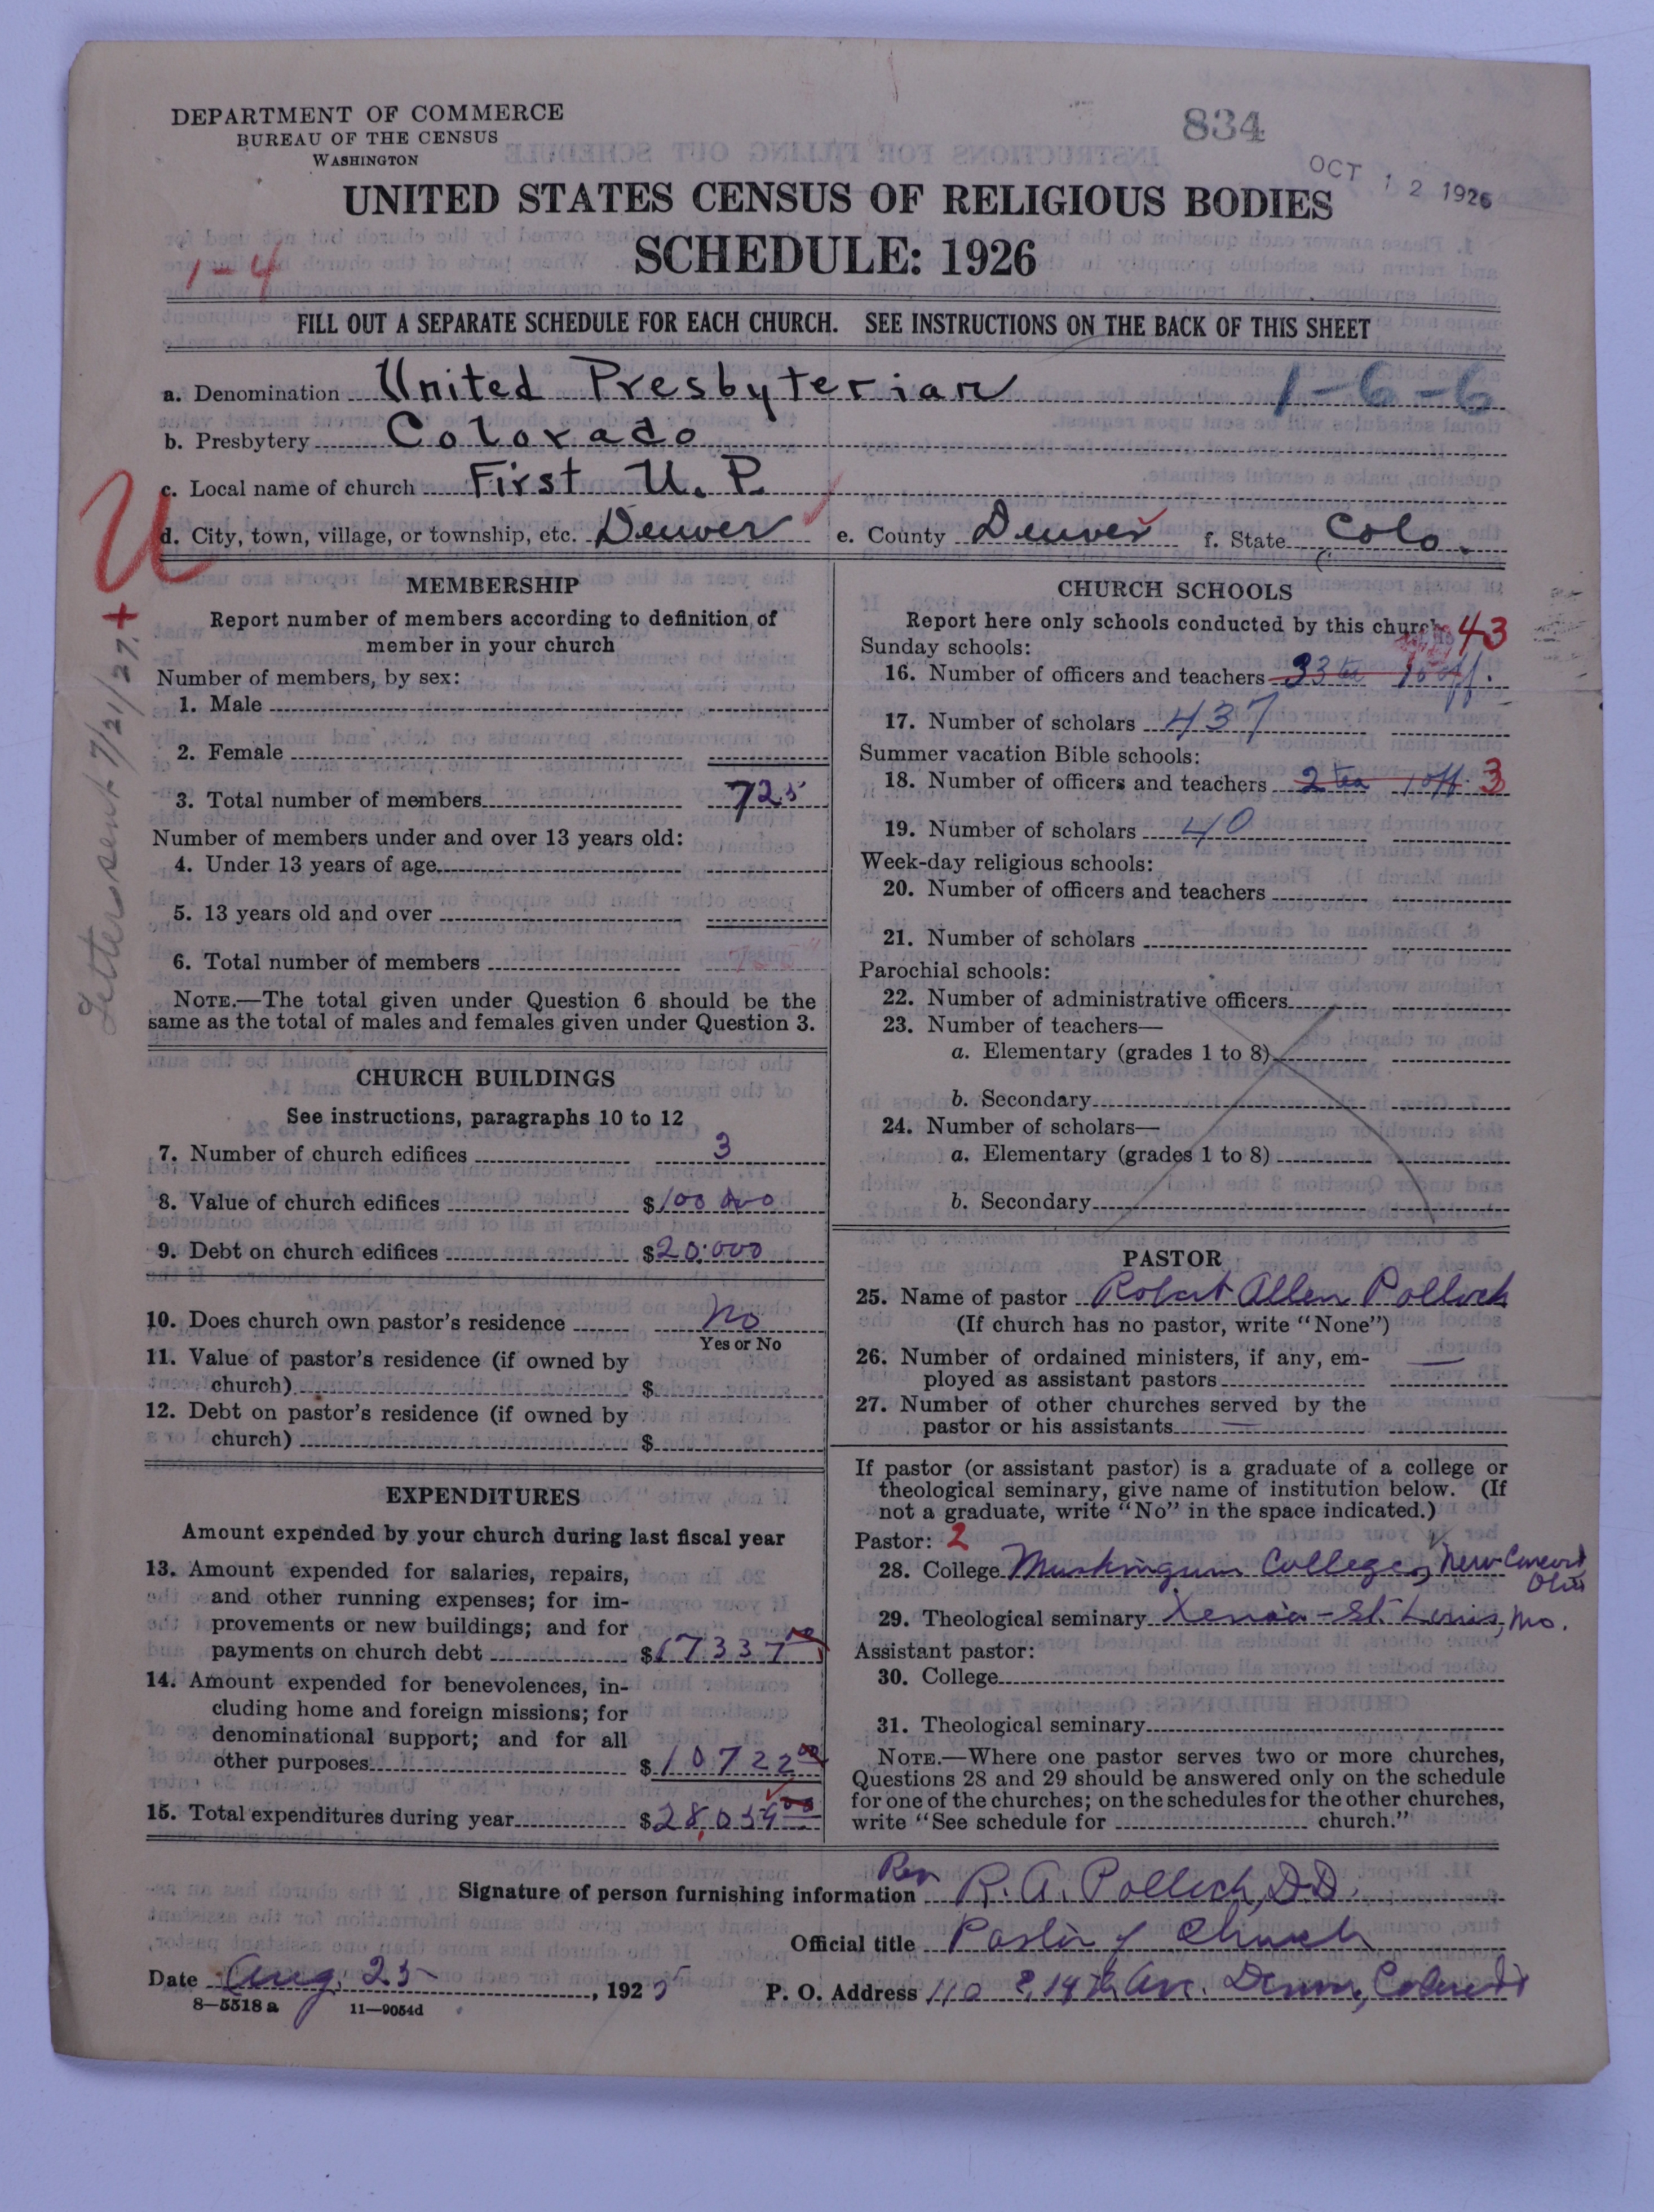 DEPARTMENT OF COMMERCE
BUREAU OF THE CENSUS
WASHINGTON
834
OCT 12 1926
UNITED STATES CENSUS OF RELIGIOUS BODIES
SCHEDULE: 1926
1-4
FILL OUT A SEPARATE SCHEDULE FOR EACH CHURCH. SEE INSTRUCTIONS ON THE BACK OF THIS SHEET
a. Denomination United Presbyterian 1-6-6
b. Presbytery Colorado
c. Local name of church First U. P.
U
d. City, town, village, or township, etc. Denver e. County Denver f. State Colo.
Letter sent 7/21/27. +
MEMBERSHIP
Report number of members according to definition of
member in your church
Number of members, by sex:
1. Male
2. Female
3. Total number of members 725
Number of members under and over 13 years old:
4. Under 13 years of age
5. 13 years old and over
6. Total number of members
NOTE.—The total given under Question 6 should be the
same as the total of males and females given under Question 3.
CHURCH BUILDINGS
See instructions, paragraphs 10 to 12
7. Number of church edifices 3
8. Value of church edifices $100 000
9. Debt on church edifices $20.000
10. Does church own pastor's residence No
Yes or No
11. Value of pastor's residence (if owned by
church) $
12. Debt on pastor's residence (if owned by
church) $
EXPENDITURES
Amount expended by your church during last fiscal year
13. Amount expended for salaries, repairs,
and other running expenses; for im-
provements or new buildings; and for
payments on church debt $17337
14. Amount expended for benevolences, in-
cluding home and foreign missions; for
denominational support; and for all
other purposes $10722 00
15. Total expenditures during year $28,059 00
CHURCH SCHOOLS
Report here only schools conducted by this church
43
Sunday schools:
16. Number of officers and teachers 33 te 10 off.
17. Number of scholars 437
Summer vacation Bible schools:
18. Number of officers and teachers 2 tea 1 off. 3
19. Number of scholars 40
Week-day religious schools:
20. Number of officers and teachers
21. Number of scholars
Parochial schools:
22. Number of administrative officers
23. Number of teachers—
a. Elementary (grades 1 to 8)
b. Secondary
24. Number of scholars—
a. Elementary (grades 1 to 8)
b. Secondary
PASTOR
25. Name of pastor Robert Allen Pollock
(If church has no pastor, write "None")
26. Number of ordained ministers, if any, em-
ployed as assistant pastors —
27. Number of other churches served by the
pastor or his assistants —
If pastor (or assistant pastor) is a graduate of a college or
theological seminary, give name of institution below. (If
not a graduate, write "No" in the space indicated.)
Pastor: 2
28. College Muskingum College, New Concord
Ohio
29. Theological seminary Xenia - St. Louis, Mo.
Assistant pastor:
30. College
31. Theological seminary
NOTE.—Where one pastor serves two or more churches,
Questions 28 and 29 should be answered only on the schedule
for one of the churches; on the schedules for the other churches,
write "See schedule for church."
Signature of person furnishing information Rev R. A. Pollock, D.D.
Official title Pastor of Church
Date Aug. 25, 1925 P. O. Address 110 E. 14th Ave. Denver, Colorado
8—5518 a 11—9054d